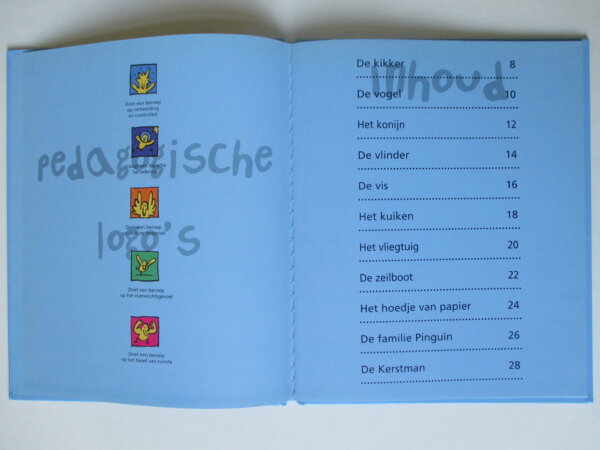 pedagogische
logo's
Doet een beroep
op verbeelding
en creativiteit
Doet een beroep
Doet een beroep
op het evenwichtsgevoel
Doet een beroep
op het besef van ruimte
Inhoud
De kikker 8
De vogel 10
Het konijn 12
De vlinder 14
De vis 16
Het kuiken 18
Het vliegtuig 20
De zeilboot 22
Het hoedje van papier 24
De familie Pinguïn 26
De Kerstman 28